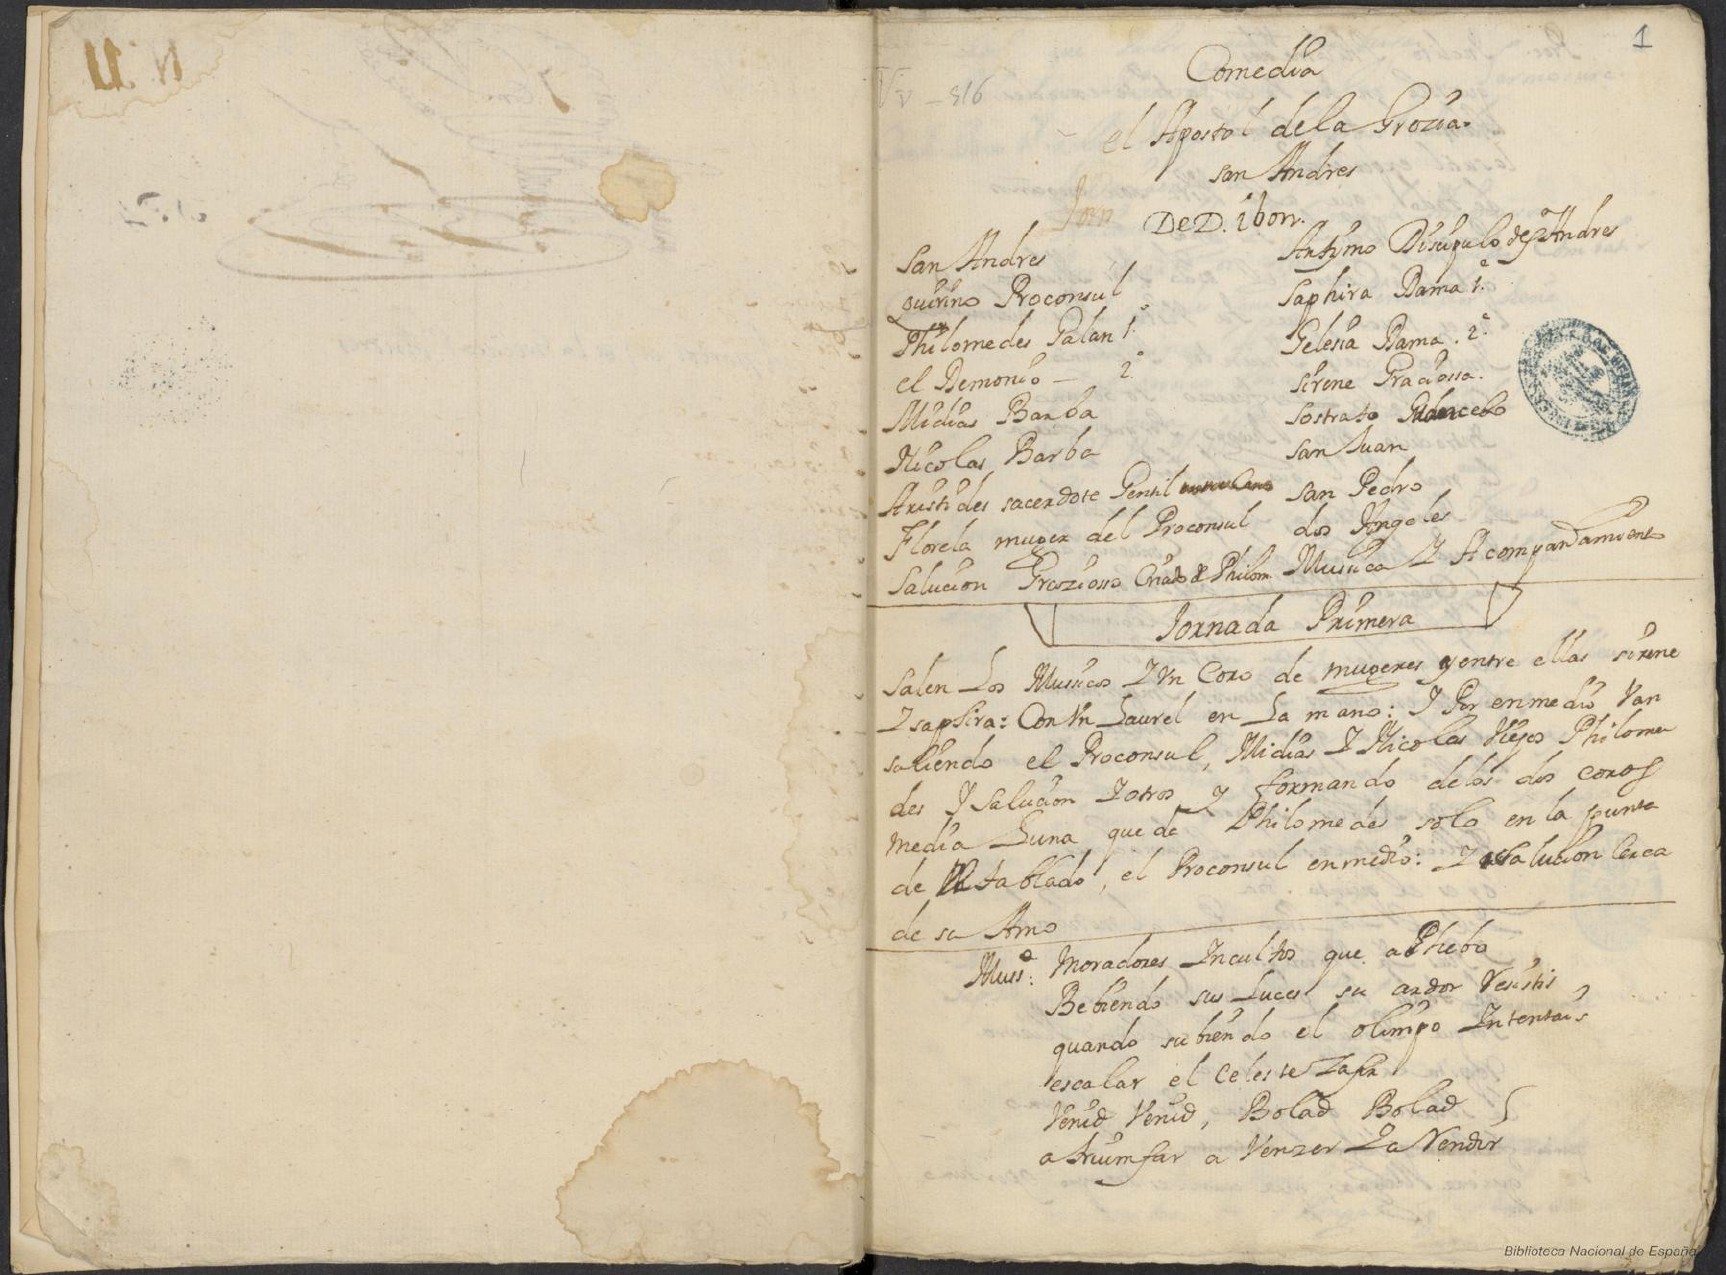 1
Vv - 816
Comedia
el Apostol dela Grozia.
san Andres
De D. iborr.
San Andres
quirino Proconsul
Philomedes Galan 1.º
el Demonio - 2.º
Midias Barba
Nicolas Barba
Aristides sacerdote Gentil
Florela muger del Proconsul
Salucion Graziosso Criado de Philom.
Antymo Disipulo de S. Andres
Saphira Dama 1.ª
Gelesia Dama. 2.ª
sirene Graciossa.
Sostrato Mancebo
san Juan
san Pedro
dos Angeles
Mussica Y Acompañamiento
Jornada Primera
Salen Los Mussicos Y Vn Coro de mugeres y entre ellas sirene
Y saphira: Con Vn Laurel en La mano: Y Por enmedio Van
saliendo el Proconsul, Midias Y Nicolas Viejos Philome
des Y Salucion Y otros Y formando delos dos coros
Media Luna que de Philomedes solo en la punta
de tablado, el Proconsul enmedio: Y salucion Cerca
de su Amo
Mussª: Moradores Incultos que a Phebo
Bebiendo sus Luces su ardor Vesistis
quando subiendo el olimpo Intentais
escalar el Celeste Zafir
Venid Venid, Bolad Bolad
a triumfar a Venzer Y a Rendir
Biblioteca Nacional de España